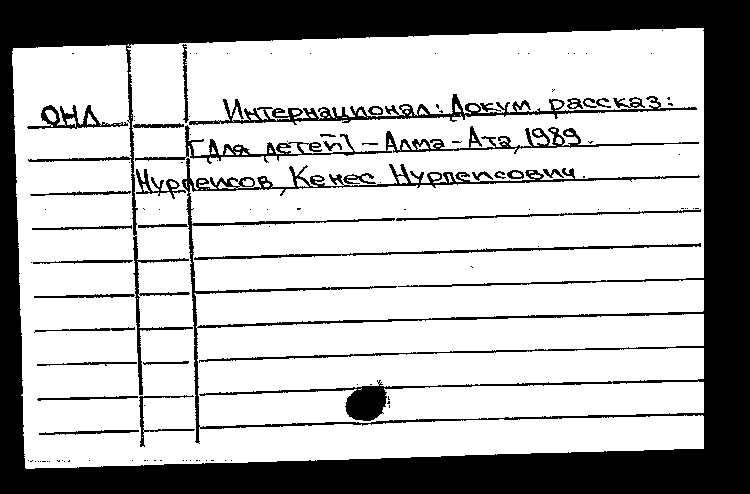 ОНЛ Интернационал: Докум. рассказ:
[Для детей] – Алма-Ата, 1989.
Нурпеисов, Кенес Нурпеисович.